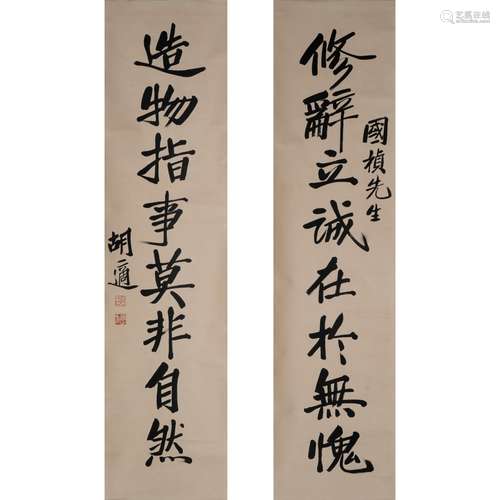 修辭立誠在於無愧
國楨先生
造物指事莫非自然
胡適
艺狐在线